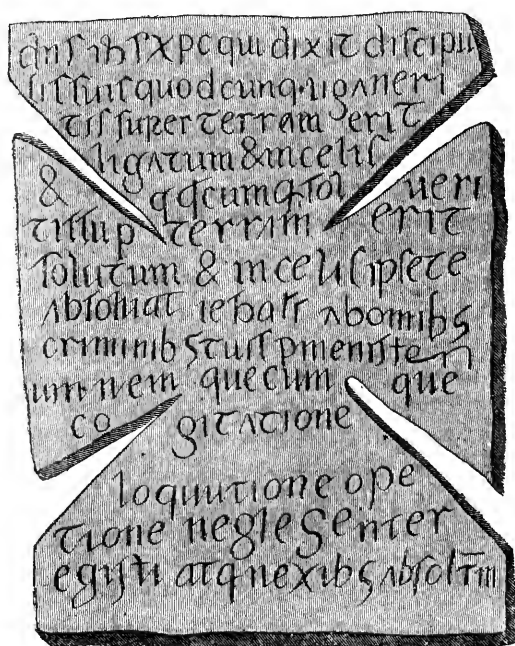 dnſ ihſ xpc qui dixit diſcipu
liſ ſuiſ quodcunq · ligaueri
tiſ ſuper terram erit
ligatum & in celiſ
& qqcumq ſol ueri
tiſ ſup terram erit
ſolutum & in celiſ ipſe te
abſoluat ab omibʒ
criminibʒ tuiſ p meniſteri
um nem quecum que
co gitatione
loquutione ope
tione neglegenter
egiſti atq nexibʒ abſoltm̄